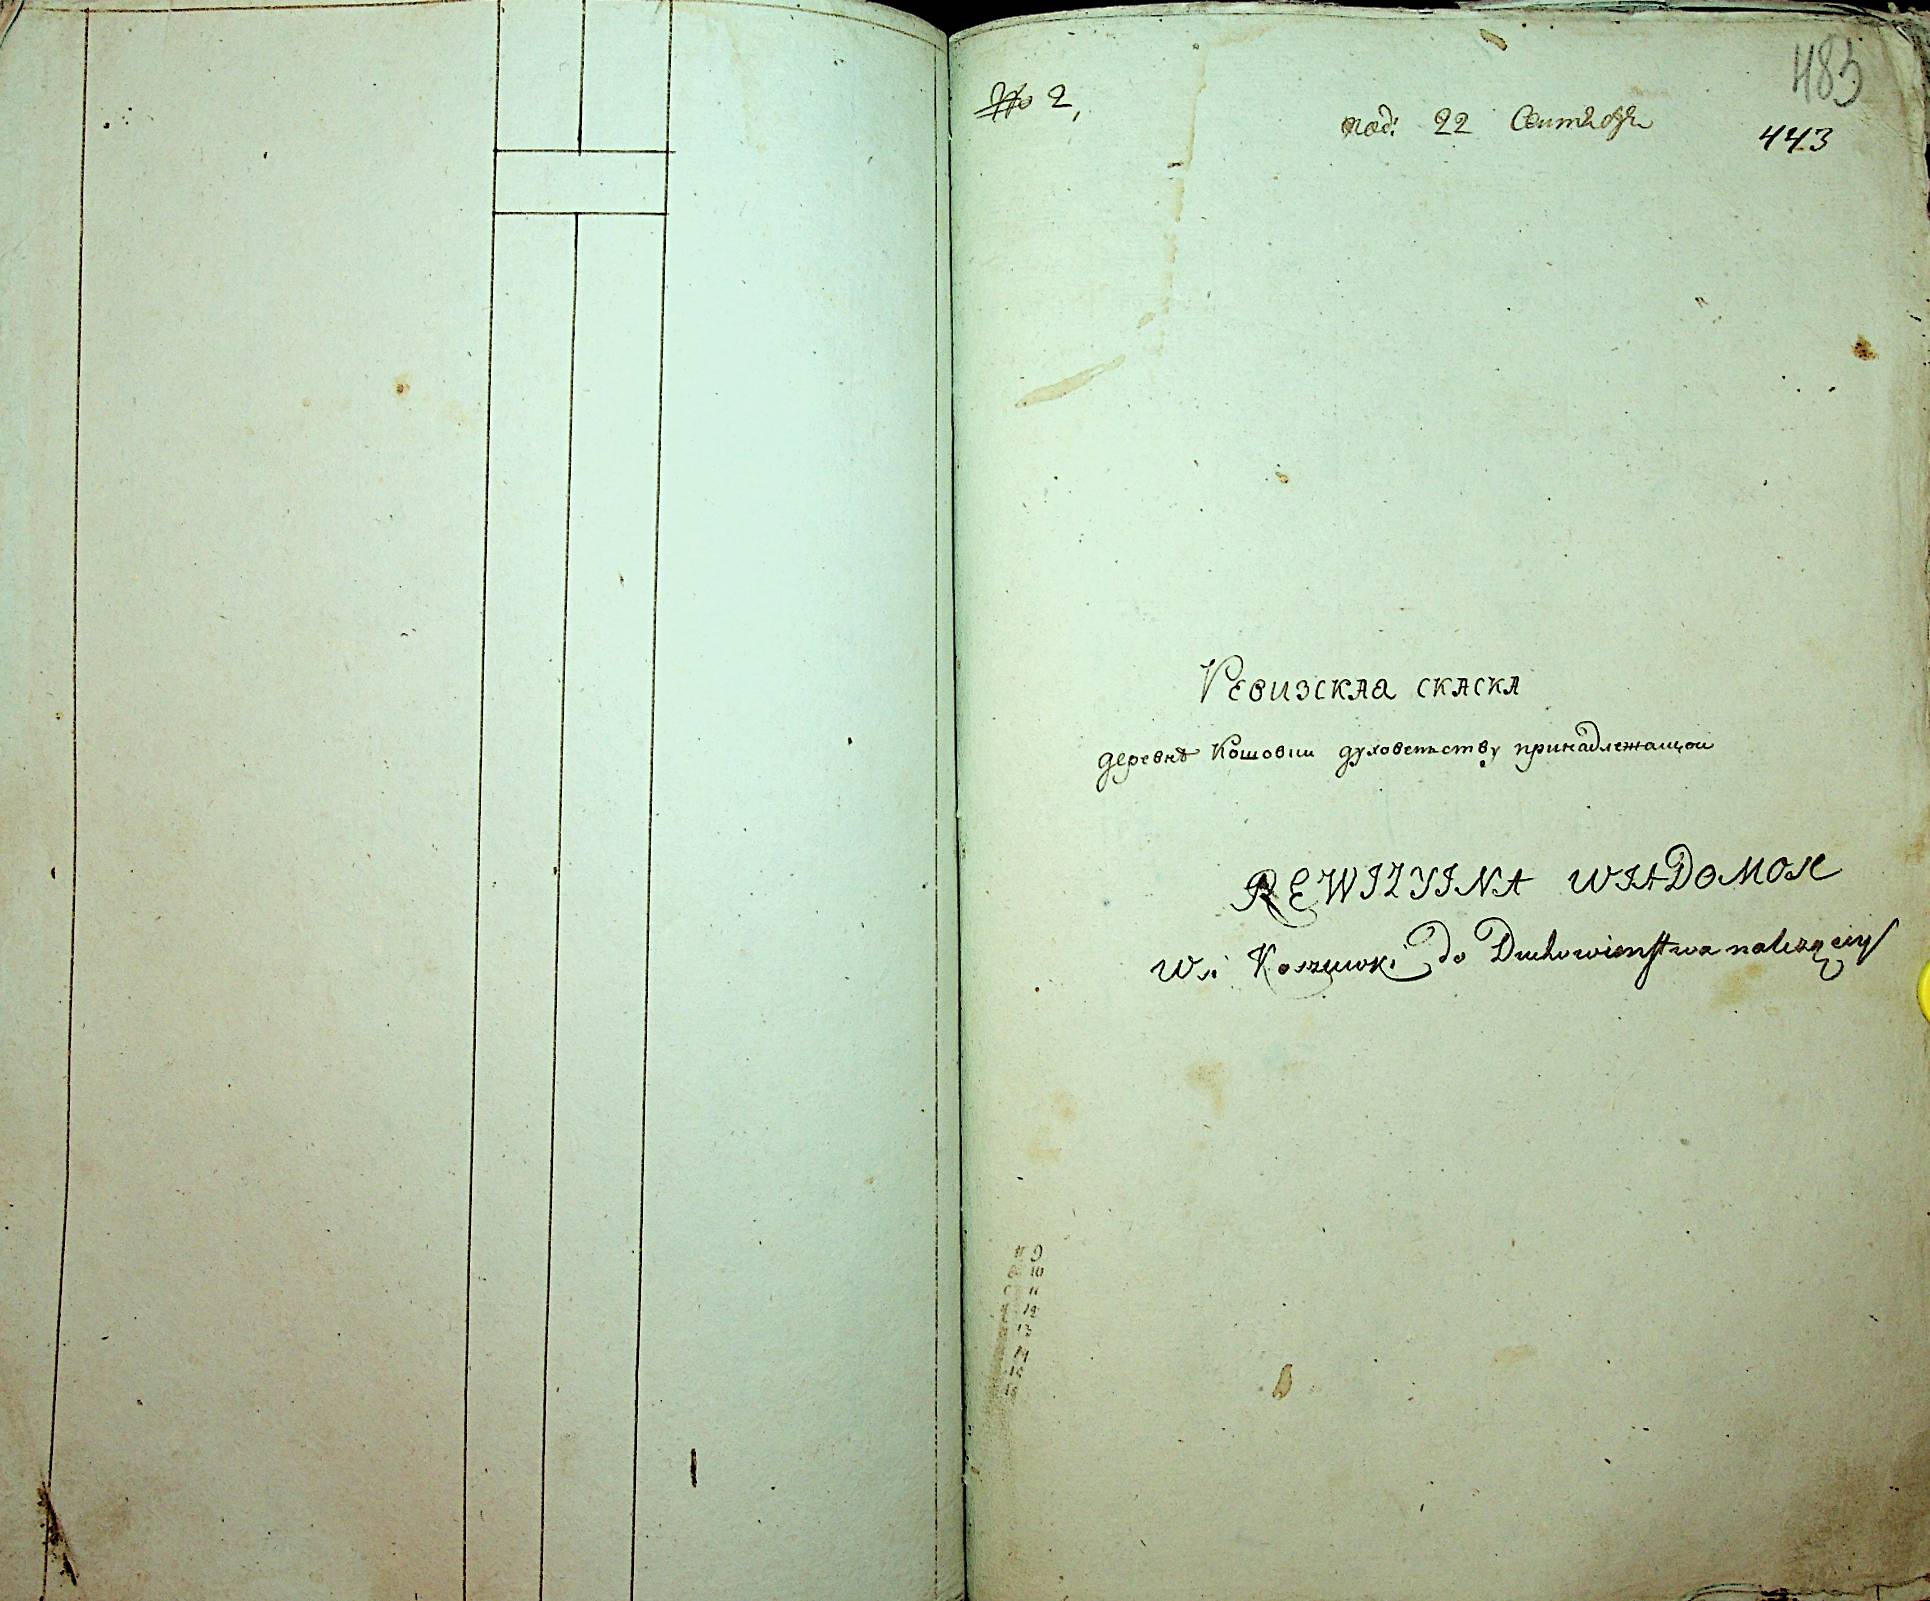 № 2,
под: 22 Сентября
483
443
Ревизская скаска
деревнѣ Кошовки духовенству принадлежащои
REWIZYINA WIADOMOSC
Wsi Koszowki do Duchowienstwa należącey
9
10
11
12
13
14
15